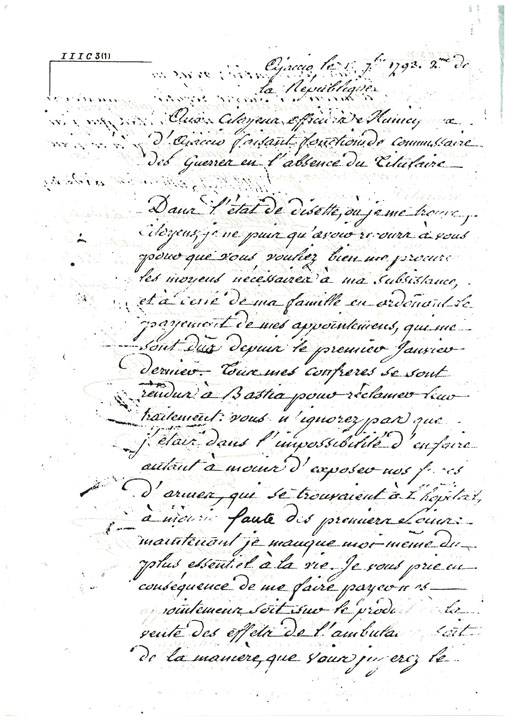 III C 3(1)
Ajaccio le 1. 7bre 1793. 2me de
la République
Aux Citoyens officiers Municip
d'Ajaccio faisant fonctions de Commissaire
des Guerres en l'absence du titulaire
Dans l'état de disette, où je me trouve,
Citoyens, je ne puis qu'avoir recours à vous
pour que vous vouliez bien me procurer
les moyens nécessaires à ma subsistance,
et à celle de ma famille en ordonant le
payement de mes appointemens, qui me
sont dus depuis le premier Janvier
dernier. Tous mes confrères se sont
rendus à Bastia pour réclamer leur
traitement: vous n'ignorez pas que
j'étais dans l'impossibilité d'en faire
autant à moins d'exposer nos frères
d'armes, qui se trouvaient à l'hôpital,
à mourir faute des premiers soins:
maintenant je manque moi-même du
plus essentiel à la vie. Je vous prie en
conséquence de me faire payer mes
appointemens soit sur le produit de la
vente des effets de l'ambulance soit
de la manière, que vous jugerez le